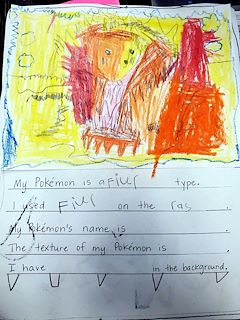 My Pokémon is a Fiur type.
I used Fiur on the ras.
My Pokémon's name is .
The texture of my Pokémon is .
I have in the background.